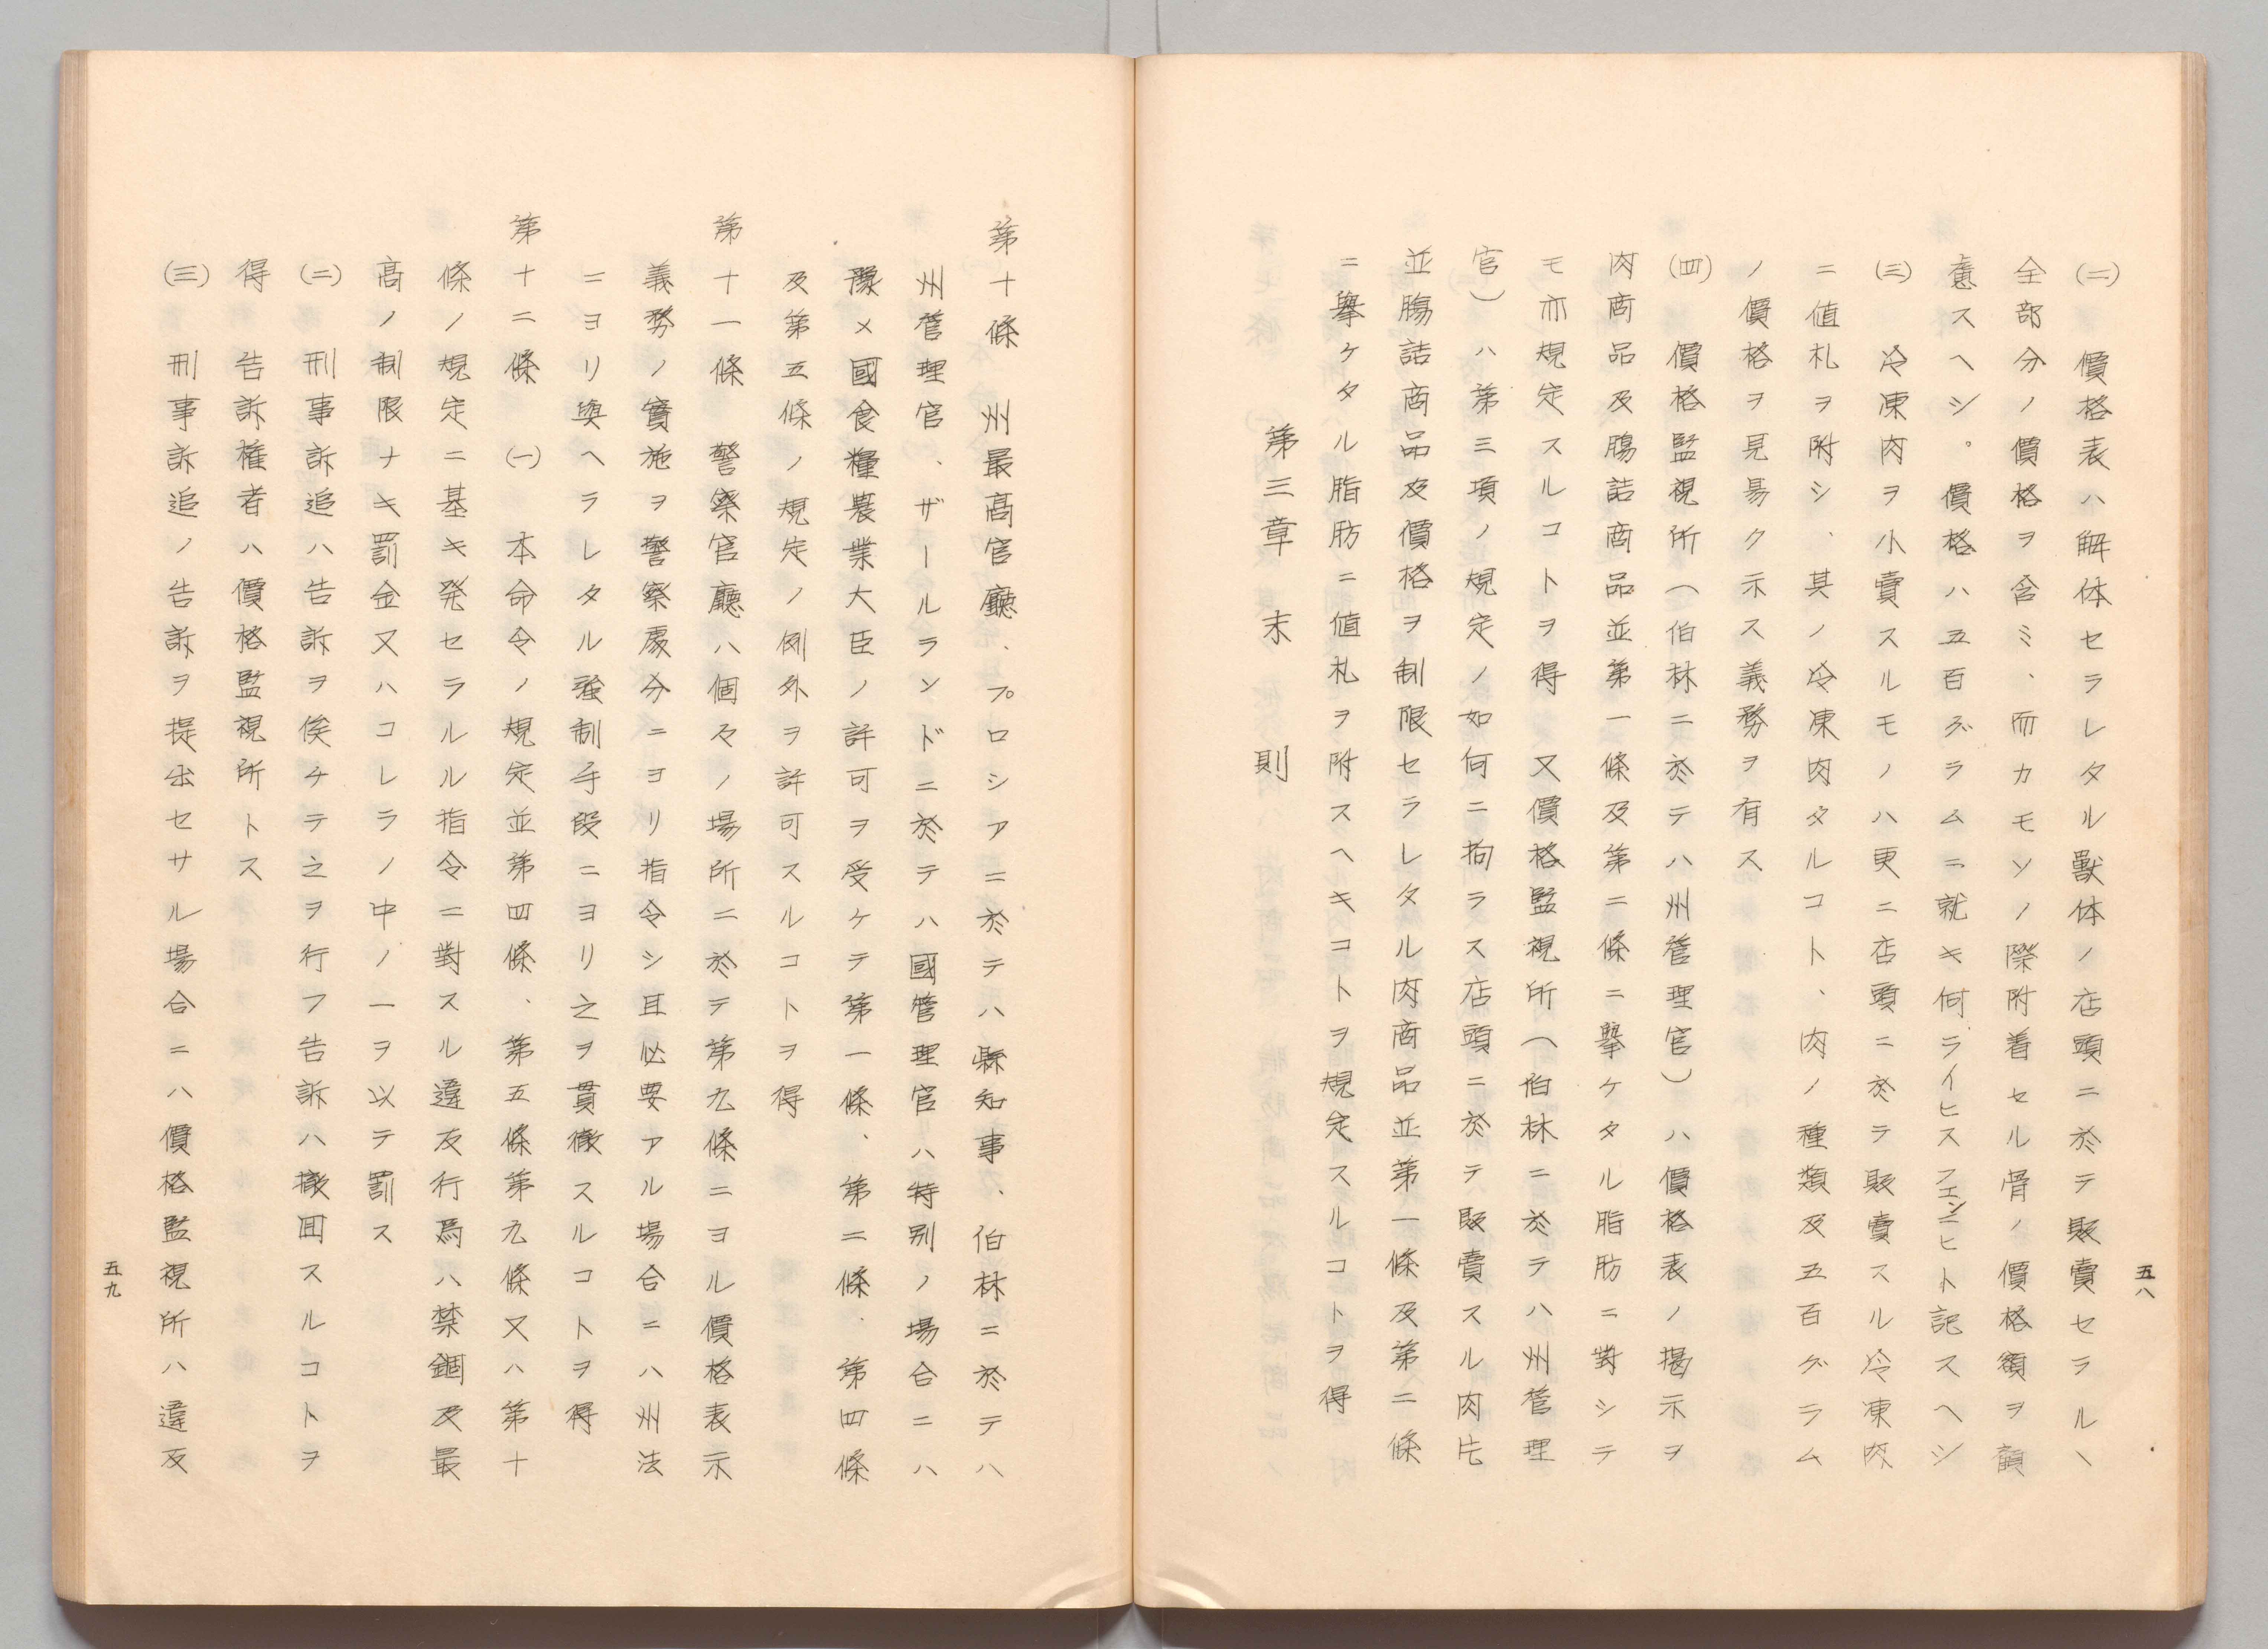 (二)　價格表ハ解体セラレタル獸体ノ店頭ニ於テ販賣セラルヽ
全部分ノ價格ヲ含ミ、而カモソノ際附着セル骨ノ價格額ヲ顧
慮スヘシ。價格ハ五百グラムニ就キ何ライヒスフエンニヒト記スヘシ
(三)　冷凍肉ヲ小賣スルモノハ更ニ店頭ニ於テ販賣スル冷凍肉
ニ値札ヲ附シ、其ノ冷凍肉タルコト、肉ノ種類及五百グラム
ノ價格ヲ見易ク示ス義務ヲ有ス
(四)　價格監視所（伯林ニ於テハ州管理官）ハ價格表ノ揭示ヲ
肉商品及腸詰商品並第一條及第二條ニ擧ケタル脂肪ニ對シテ
モ亦規定スルコトヲ得　又價格監視所（伯林ニ於テハ州管理
官）ハ第三項ノ規定ノ如何ニ拘ラス店頭ニ於テ販賣スル肉片
並腸詰商品及價格ヲ制限セラレタル肉商品並第一條及第二條
ニ擧ケタル脂肪ニ値札ヲ附スヘキコトヲ規定スルコトヲ得
第三章　末　則
五八
第十條　州最高官廳、プロシアニ於テハ縣知事、伯林ニ於テハ
州管理官、ザールランドニ於テハ國管理官ハ特別ノ場合ニハ
豫メ國食糧農業大臣ノ許可ヲ受ケテ第一條、第二條、第四條
及第五條ノ規定ノ例外ヲ許可スルコトヲ得
第十一條　警察官廳ハ個々ノ場所ニ於テ第九條ニヨル價格表示
義務ノ實施ヲ警察處分ニヨリ指令シ且必要アル場合ニハ州法
ニヨリ與ヘラレタル强制手段ニヨリ之ヲ貫徹スルコトヲ得
第十二條　(一)　本命令ノ規定並第四條、第五條第九條又ハ第十
條ノ規定ニ基キ発セラルル指令ニ對スル違反行爲ハ禁錮及最
高ノ制限ナキ罰金又ハコレラノ中ノ一ヲ以テ罰ス
(二)　刑事訴追ハ告訴ヲ俟チテ之ヲ行フ告訴ハ撤囬スルコトヲ
得　告訴権者ハ價格監視所トス
(三)　刑事訴追ノ告訴ヲ提出セサル場合ニハ價格監視所ハ違反
五九